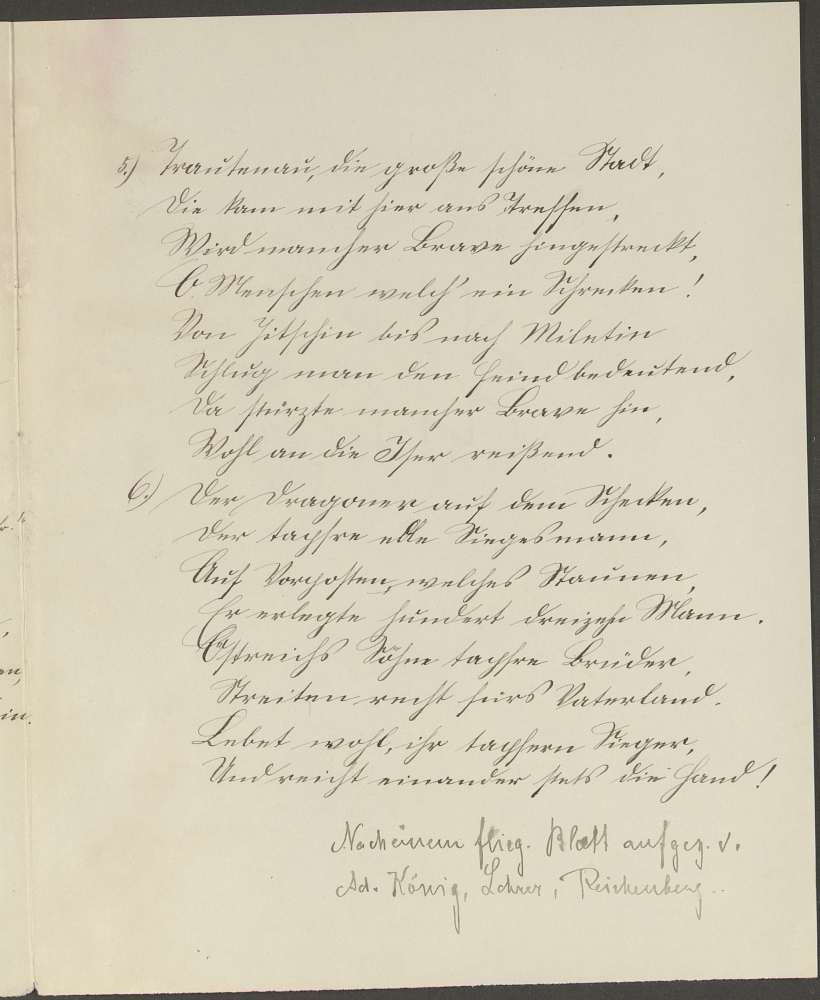 5.) Trautenau, die große schöne Stadt,
Die kam mit hier ans Treffen,
Wird mancher Brave hingestreckt,
O Menschen welch' ein Schrecken!
Von Jitschin bis nach Miletin
Schlug man den Feind bedeutend,
Da stürzte mancher Brave hin,
Wohl an die Iser reißend.
6.) Der Dragoner auf dem Schecken,
Der tapfre edle Siegesmann,
Auf Vorposten, welches Staunen,
Er erlegte hundert dreizehn Mann.
Östreichs Söhne tapfre Brüder,
Streiten recht fürs Vaterland.
Lebet wohl, ihr tapfern Sieger,
Und reicht einander stets die Hand!
Nach einem flieg. Blatt aufgez. v.
Ad. König, Lehrer, Reichenberg.